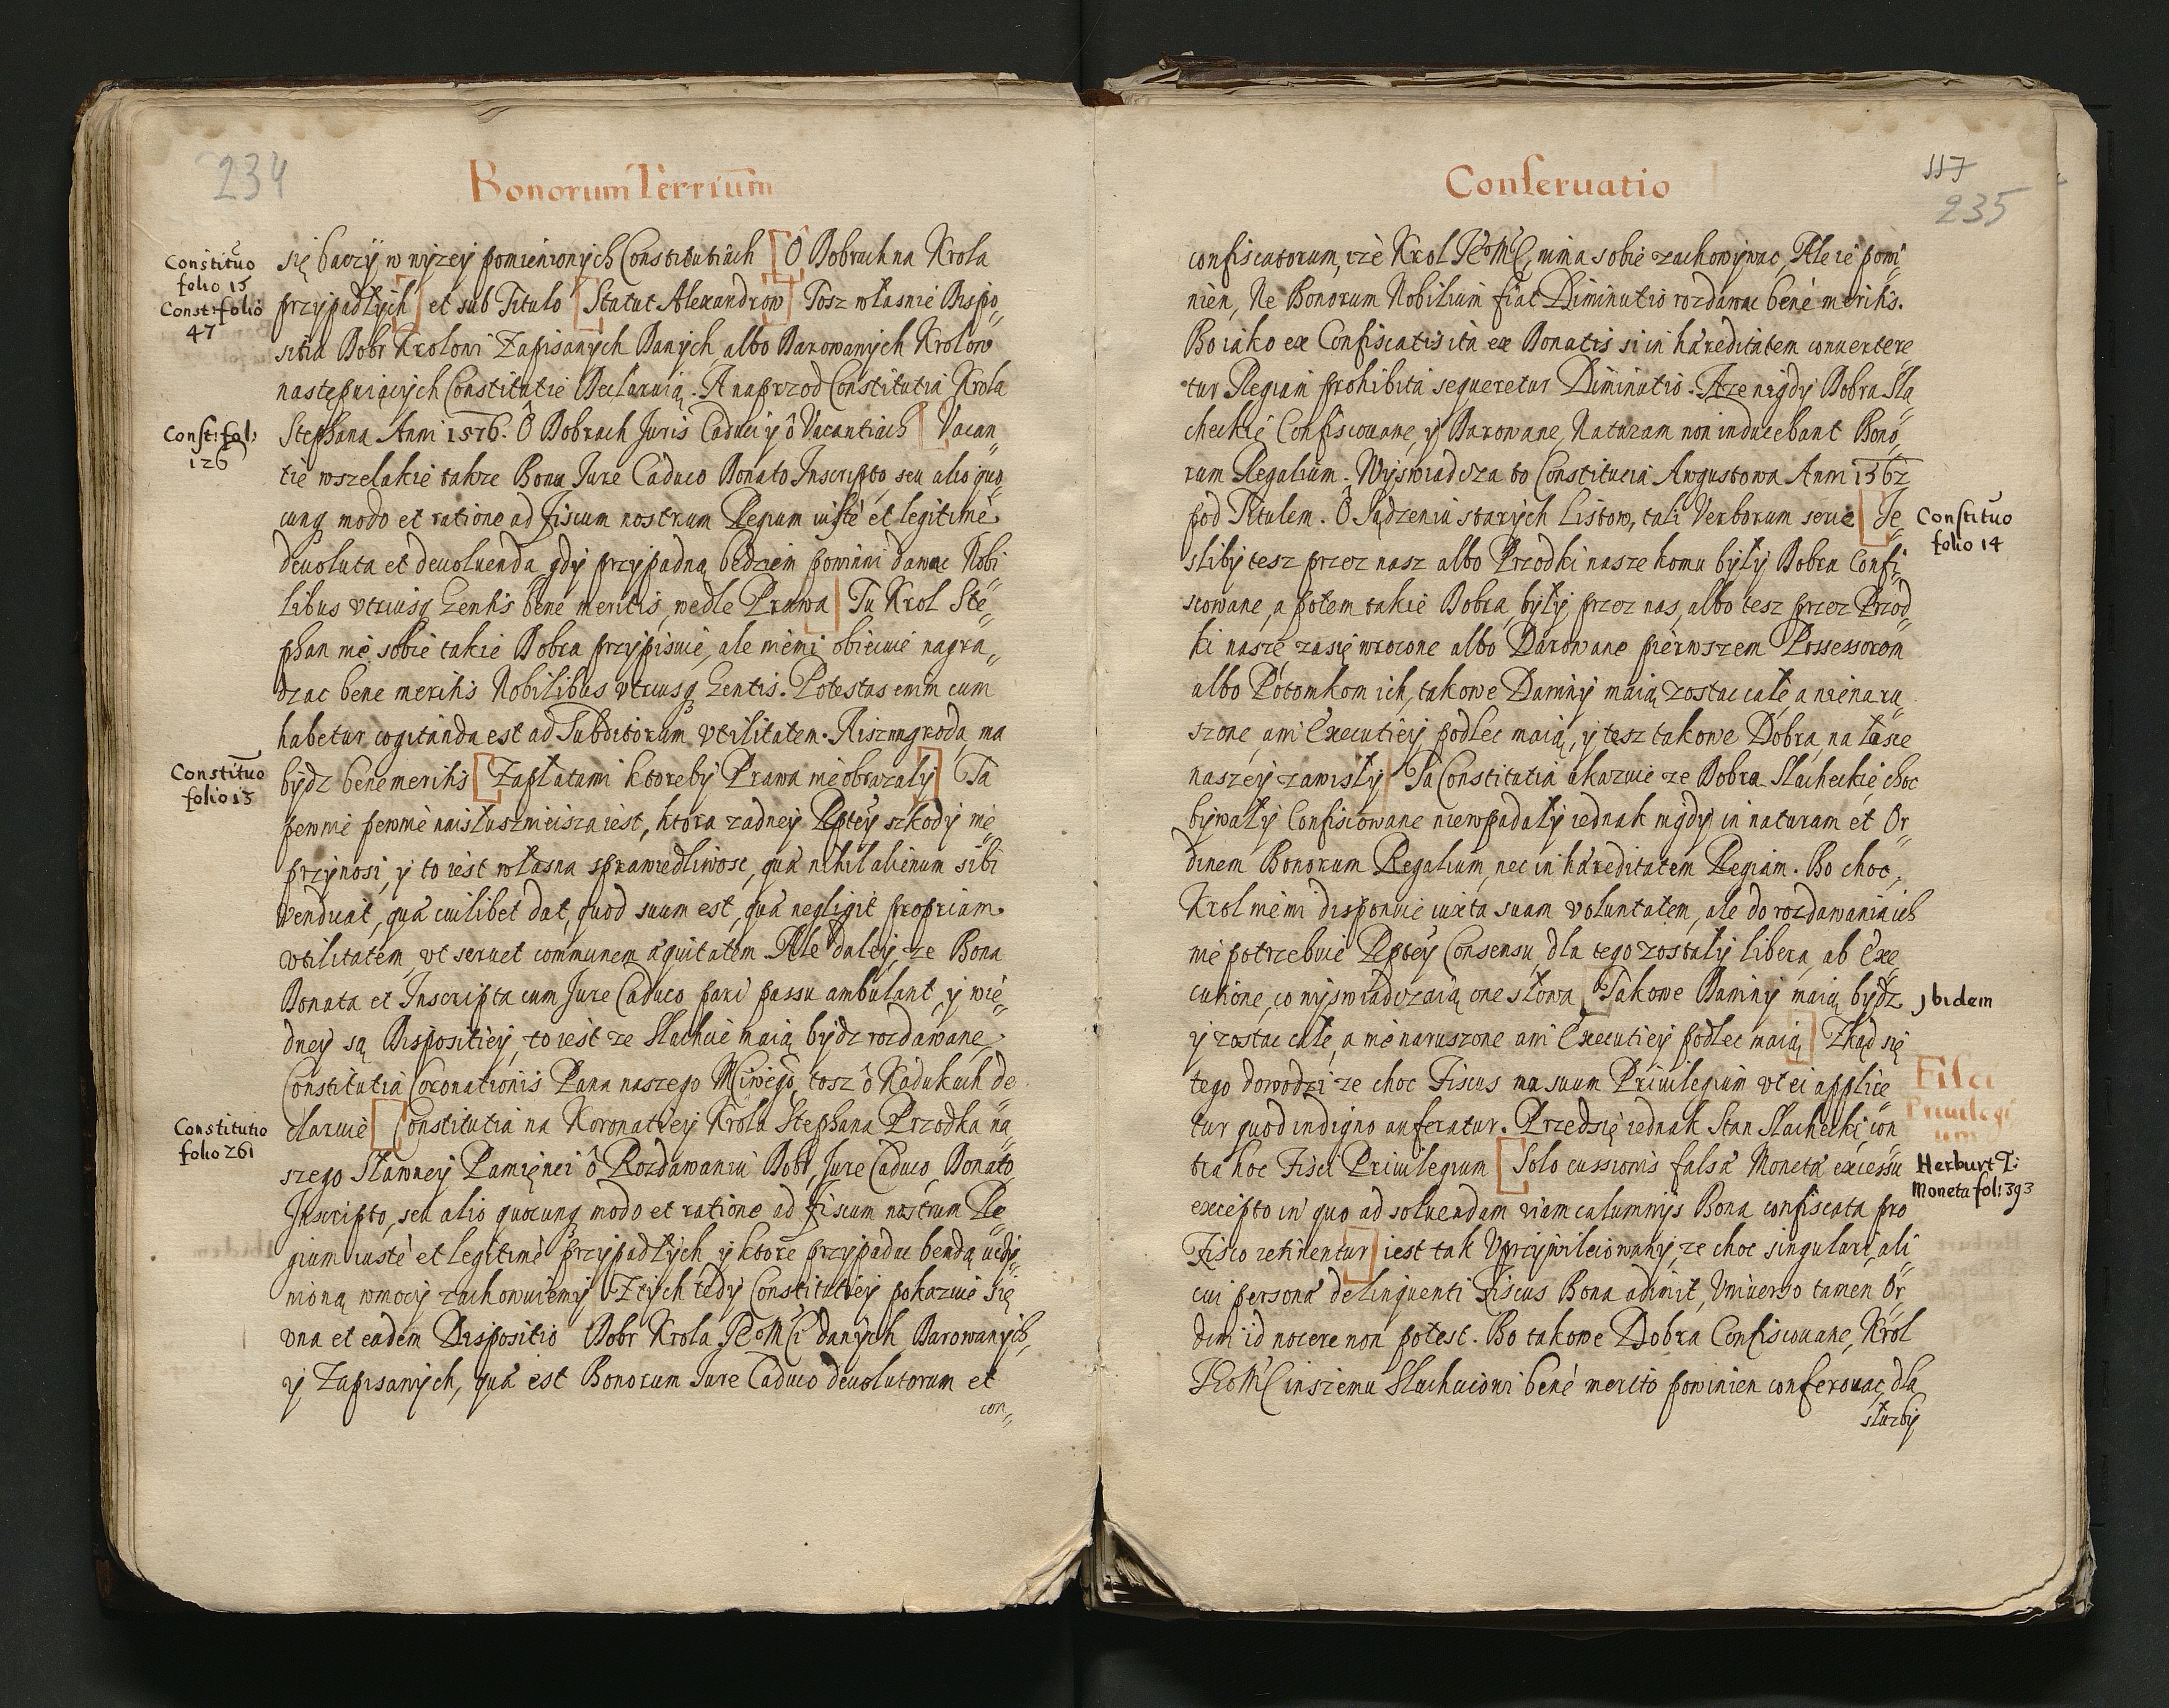 234
Bonorum Terrium
Constituo
folio 15
Const: folio
47
się baczy w wyzey pomienionych Constitutiach [O Dobrach na Krola
przypadłych] et sub Titulo [Statut Alexandrow] Tosz własnie Dispo„
sitia Dobr Krolowi Zapisanych Danych albo Darowanych Krolow
nastepuiących Constitutie Declaruią. A naprzod Constitutia Krola
Const: fol:
126
Stephana Anni 1576. O Dobrach Juris Caduci y ô Vacantiach [Vacan„
tie wszelakie takze Bona Jure Caduco Donato Inscripto seu alio quo„
cunq modo et ratione ad fiscum nostrum Regium iuste et legitime
deuoluta et deuoluenda gdy przypadną bedziem powinni dawac Nobi
libus vtriusq Gentis bene meritis, wedle Prawa] Tu Krol Ste„
phan nie sobie takie Dobra przypisuie, ale niemi obiecuie nagra„
dzac bene meritis Nobilibus vtriusq Gentis. Potestas enim cum
habetur cogitanda est ad Subditorum vtilitatem. A isz nagroda ma
Constituo
folio 15
bydz benemeritis [Zapłatami ktoreby Prawa nie obrazały] Ta
pewnie pewnie naisłusznieisza iest, ktora zadney Rptey szkody nie
przynosi, y to iest własna sprawiedliwosc, quæ nihil alienum sibi
venduat, quæ cuilibet dat, quod suum est, quæ negligit propriam
vtilitatem, vt seruet communem æquitatem. Ale daley, ze Bona
Donata et Inscripta cum Jure Caduco pari passu ambulant, y wie„
dney są Dispositiey, to iest ze Slachcie maią bydz rozdawane,
Constitutia Coronationis Pana naszego Mciwego, tosz ô Kadukach de
Constitutio
folio 261
claruie [Constitutia na Koronatiey Krola Stephana Przodka na„
szego sławney Pamięnci ô Rozdawaniu Dobr, Jure Caduco, Donato
Inscripto, seu alio quocunq modo et ratione ad fiscum nostrum Re„
gium iuste et legitime przypadłych, y ktore przypadac bendą uczy„
nioną wmocy zachowuiemy] Z tych tedy Constitutiey pokazuie się
vna et eadem Dispositio Dobr Krola JEoMCi danych Darowanych,
y Zapisanych, quæ est Bonorum Jure Caduco deuolutorum et
con„
Conseruatio
117
235
confiscatorum, ize Krol JEoMC, nima sobie zachowywac, Ale ie powi„
nien, Ne Bonorum Nobilium fiat Diminutio rozdawac bene meritis.
Bo iako ex Confiscatis ita ex Donatis si in hæreditatem conuertere„
tur Regiam prohibita sequeretur Diminutio. A ze nigdy Dobra Sla„
checkie Confiscowane, y Darowane, Naturam non inducebant Bono„
rum Regalium. Wyswiadcza to Constitucia Awgustowa Anni 1562
pod Titulem. O Sądzeniu starych Listow, tali Verborum serie [Je„
Constituo
folio 14
slibytesz przez nasz albo Przodki nasze komu były Dobra Confi„
scowane, a potem takie Dobra, były przez nas, albo tesz przez Przod„
ki nasze zasię wrocone albo Darowane pierwszem Possessorom
albo Potomkom ich, takowe Daniny maią zostac całe, a nienaru„
szone, ani Executiey podlec maią, y tesz takowe Dobra, na łasce
naszey zawisły] Ta Constitutia ukazuie ze Dobra Slacheckie, choc
bywały Confiscowane niewpadały iednak nigdy in naturam et Or„
dinem Bonorum Regalium, nec in hæreditatem Regiam. Bo choc,
Krol niemi disponuie iuxta suam voluntatem, ale do rozdawania ich
nie potrzebuie Rptey Consensu, dla tego zostały libera, ab Exe„
cutione, co wyswiadczaią one słowa [Takowe Daniny maią bydz
Jbidem
y zostac całe, a nienaruszone ani Executiey podlec maią] Zkąd się
Fisci
Priuilegi
um
tego dowodzi ze choc Fiscus ma suum Priuilegium vt ei applice„
tur quod indigno auferatur. Przedsię iednak Stan Slachecki, con
Herburt T:
Moneta fol: 393
tra hoc Fisci Priuilegium [Solo cussionis falsæ Monetæ excessu
excepto in quo ad soluendam viam calumnijs Bona confiscata pro
Fisco retinentur] iest tak Vprzywileiowany, ze choc singulari, ali„
cui personæ delinquenti Fiscus Bona adimit, Vniuerso tamen Or„
dini id nocere non potest. Bo takowe Dobra Confiscowane, Krol
JEoMC inszemu Slachcicowi bene merito powinien conferowac, dla
słuzby